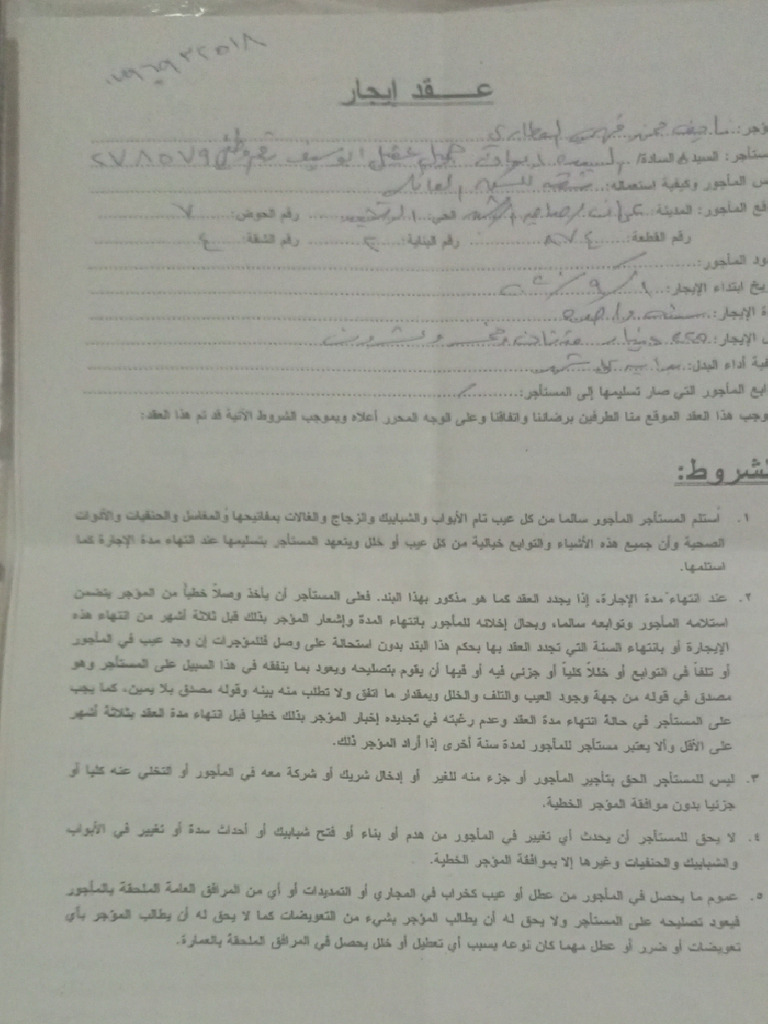 عـــــقد إيجار
ـؤجر:
ـستأجر: السيد / السادة/ ٢٧٨٥٧٩
ـس المأجور وكيفية استعماله: شقة للسكن
ـقع المأجور: المدينة: الحي: رقم الحوض: ٧
رقم القطعة: ٨٧٤ رقم البناية: رقم الشقة: ٤
ـدود المأجور:
ـريخ ابتداء الإيجار: ١/٩/
ـة الإيجار: سنة واحدة
ـل الإيجار: دينار مئتان وخمسة وعشرون
ـفية أداء البدل: كل شهر
ـابع المأجور التي صار تسليمها إلى المستأجر:
ـوجب هذا العقد الموقع منا الطرفين برضائنا واتفاقنا وعلى الوجه المحرر أعلاه وبموجب الشروط الآتية قد تم هذا العقد:
ـشروط:
١. أستلم المستأجر المأجور سالما من كل عيب تام الأبواب والشبابيك والزجاج والغالات بمفاتيحها والمغاسل والحنفيات والأدوات
الصحية وأن جميع هذه الأشياء والتوابع خالية من كل عيب أو خلل ويتعهد المستأجر بتسليمها عند انتهاء مدة الإجارة كما
استلمها.
٢. عند انتهاء مدة الإجارة، إذا يجدد العقد كما هو مذكور بهذا البند. فعلى المستأجر أن يأخذ وصلاً خطياً من المؤجر يتضمن
استلامه المأجور وتوابعه سالما، وبحال إخلائه للمأجور بانتهاء المدة وإشعار المؤجر بذلك قبل ثلاثة أشهر من انتهاء هذه
الإيجارة أو بانتهاء السنة التي تجدد العقد بها بحكم هذا البند بدون استحالة على وصل فللمؤجرات إن وجد عيب في المأجور
أو تلفاً في التوابع أو خللاً كلياً أو جزئي فيه أو فيها أن يقوم بتصليحه ويعود بما ينفقه في هذا السبيل على المستأجر وهو
مصدق في قوله من جهة وجود العيب والتلف والخلل وبمقدار ما اتفق ولا تطلب منه بينه وقوله مصدق بلا يمين، كما يجب
على المستأجر في حالة انتهاء مدة العقد وعدم رغبته في تجديده إخبار المؤجر بذلك خطيا قبل انتهاء مدة العقد بثلاثة أشهر
على الأقل وألا يعتبر مستأجر للمأجور لمدة سنة أخرى إذا أراد المؤجر ذلك.
٣. ليس للمستأجر الحق بتأجير المأجور أو جزء منه للغير أو إدخال شريك أو شركة معه في المأجور أو التخلي عنه كليا أو
جزئيا بدون موافقة المؤجر الخطية.
٤. لا يحق للمستأجر أن يحدث أي تغيير في المأجور من هدم أو بناء أو فتح شبابيك أو أحداث سدة أو تغيير في الأبواب
والشبابيك والحنفيات وغيرها إلا بموافقة المؤجر الخطية.
٥. عموم ما يحصل في المأجور من عطل أو عيب كخراب في المجاري أو التمديدات أو أي من المرافق العامة الملحقة بالمأجور
فيعود تصليحه على المستأجر ولا يحق له أن يطالب المؤجر بشيء من التعويضات كما لا يحق له أن يطالب المؤجر بأي
تعويضات أو ضرر أو عطل مهما كان نوعه بسبب أي تعطيل أو خلل يحصل في المرافق الملحقة بالعمارة.